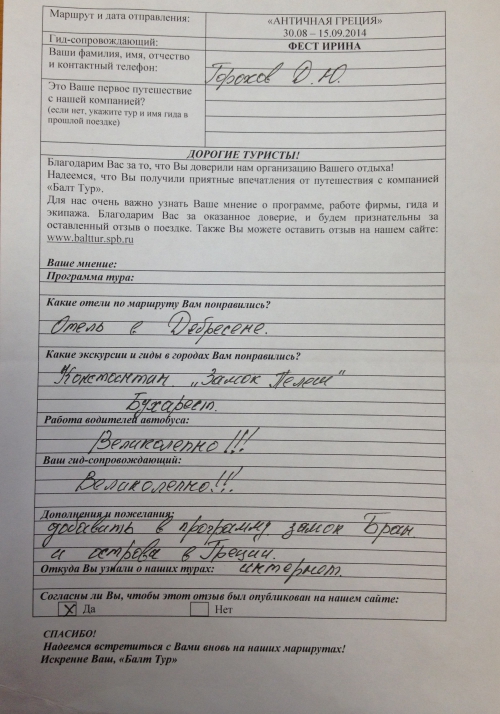 Маршрут и дата отправления:
«АНТИЧНАЯ ГРЕЦИЯ»
30.08 – 15.09.2014
Гид-сопровождающий:
ФЕСТ ИРИНА
Ваши фамилия, имя, отчество
и контактный телефон:
Горохов Д.Ю.
Это Ваше первое путешествие
с нашей компанией?
(если нет, укажите тур и имя гида в
прошлой поездке)
ДОРОГИЕ ТУРИСТЫ!
Благодарим Вас за то, что Вы доверили нам организацию Вашего отдыха!
Надеемся, что Вы получили приятные впечатления от путешествия с компанией
«Балт Тур».
Для нас очень важно узнать Ваше мнение о программе, работе фирмы, гида и
экипажа. Благодарим Вас за оказанное доверие, и будем признательны за
оставленный отзыв о поездке. Также Вы можете оставить отзыв на нашем сайте:
www.balttur.spb.ru
Ваше мнение:
Программа тура:
Какие отели по маршруту Вам понравились?
Отель в Дебресене.
Какие экскурсии и гиды в городах Вам понравились?
Константин. „Замок Пелеш"
Бухарест.
Работа водителей автобуса:
Великолепно!!!
Ваш гид-сопровождающий:
Великолепно!!!
Дополнения и пожелания:
добавить в программу замок Бран
и острова в Греции.
Откуда Вы узнали о наших турах: интернет.
Согласны ли Вы, чтобы этот отзыв был опубликован на нашем сайте:
X Да Нет
СПАСИБО!
Надеемся встретиться с Вами вновь на наших маршрутах!
Искренне Ваш, «Балт Тур»